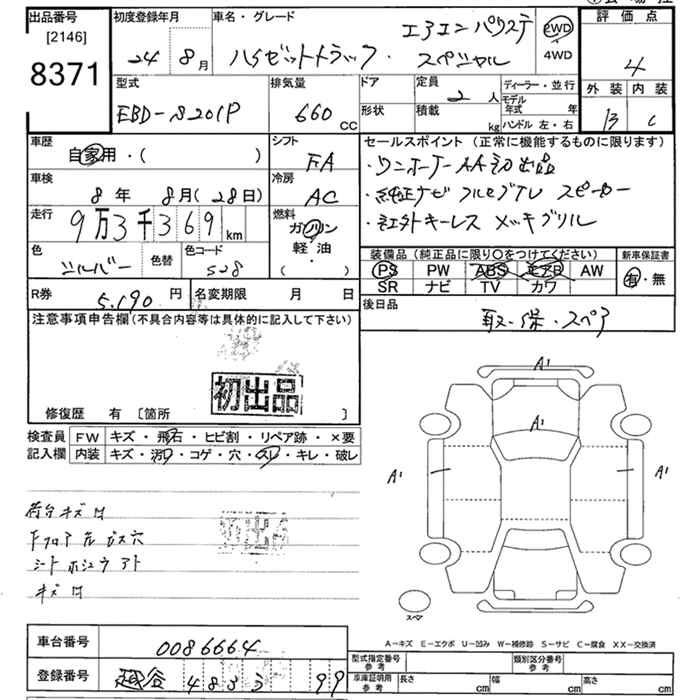 出品番号
[2146]
8371
初度登録年月
24年 8月
車名・グレード
ハイゼットトラック・ エアコンパワステ スペシャル
2WD
4WD
評価点
4
外装 内装
B C
型式
EBD-S201P
排気量
660 cc
ドア
形状
定員
2人
積載
kg
ディーラー・並行
モデル年式 年
ハンドル 左・右
車歴
自家用・( )
シフト
FA
車検
8年 8月(28日)
冷房
AC
走行
9万3千369km
燃料
ガソリン
軽・油
( )
色
シルバー
色替
色コード
S28
セールスポイント(正常に機能するものに限ります)
・ワンオーナーAA初出品
・純正ナビ フルセグTV スピーカー
・社外キーレス メッキグリル
装備品(純正品に限り○をつけてください)
PS PW ABS エアB AW
SR ナビ TV カワ
新車保証書
有・無
R券
5,190円
名変期限 月 日
後日品
取・保・スペア
注意事項申告欄(不具合内容等は具体的に記入して下さい)
初出品
修復歴 有 〔箇所 〕
検査員
記入欄
FW キズ・飛石・ヒビ割・リペア跡・×要
内装 キズ・汚レ・コゲ・穴・スレ・キレ・破レ
荷台キズ凹
Fフロア左ビス穴
シート ホシュウアト
キズ凹
初出品
A1
A1
A1
A1
スペア
A-キズ E-エクボ U-凹み W-補修跡 S-サビ C-腐食 XX-交換済
車台番号
0086664
登録番号
越谷 4833 99
型式指定番号
参考
類別区分番号
参考
車庫証明用
参考
長さ cm
幅 cm
高さ cm